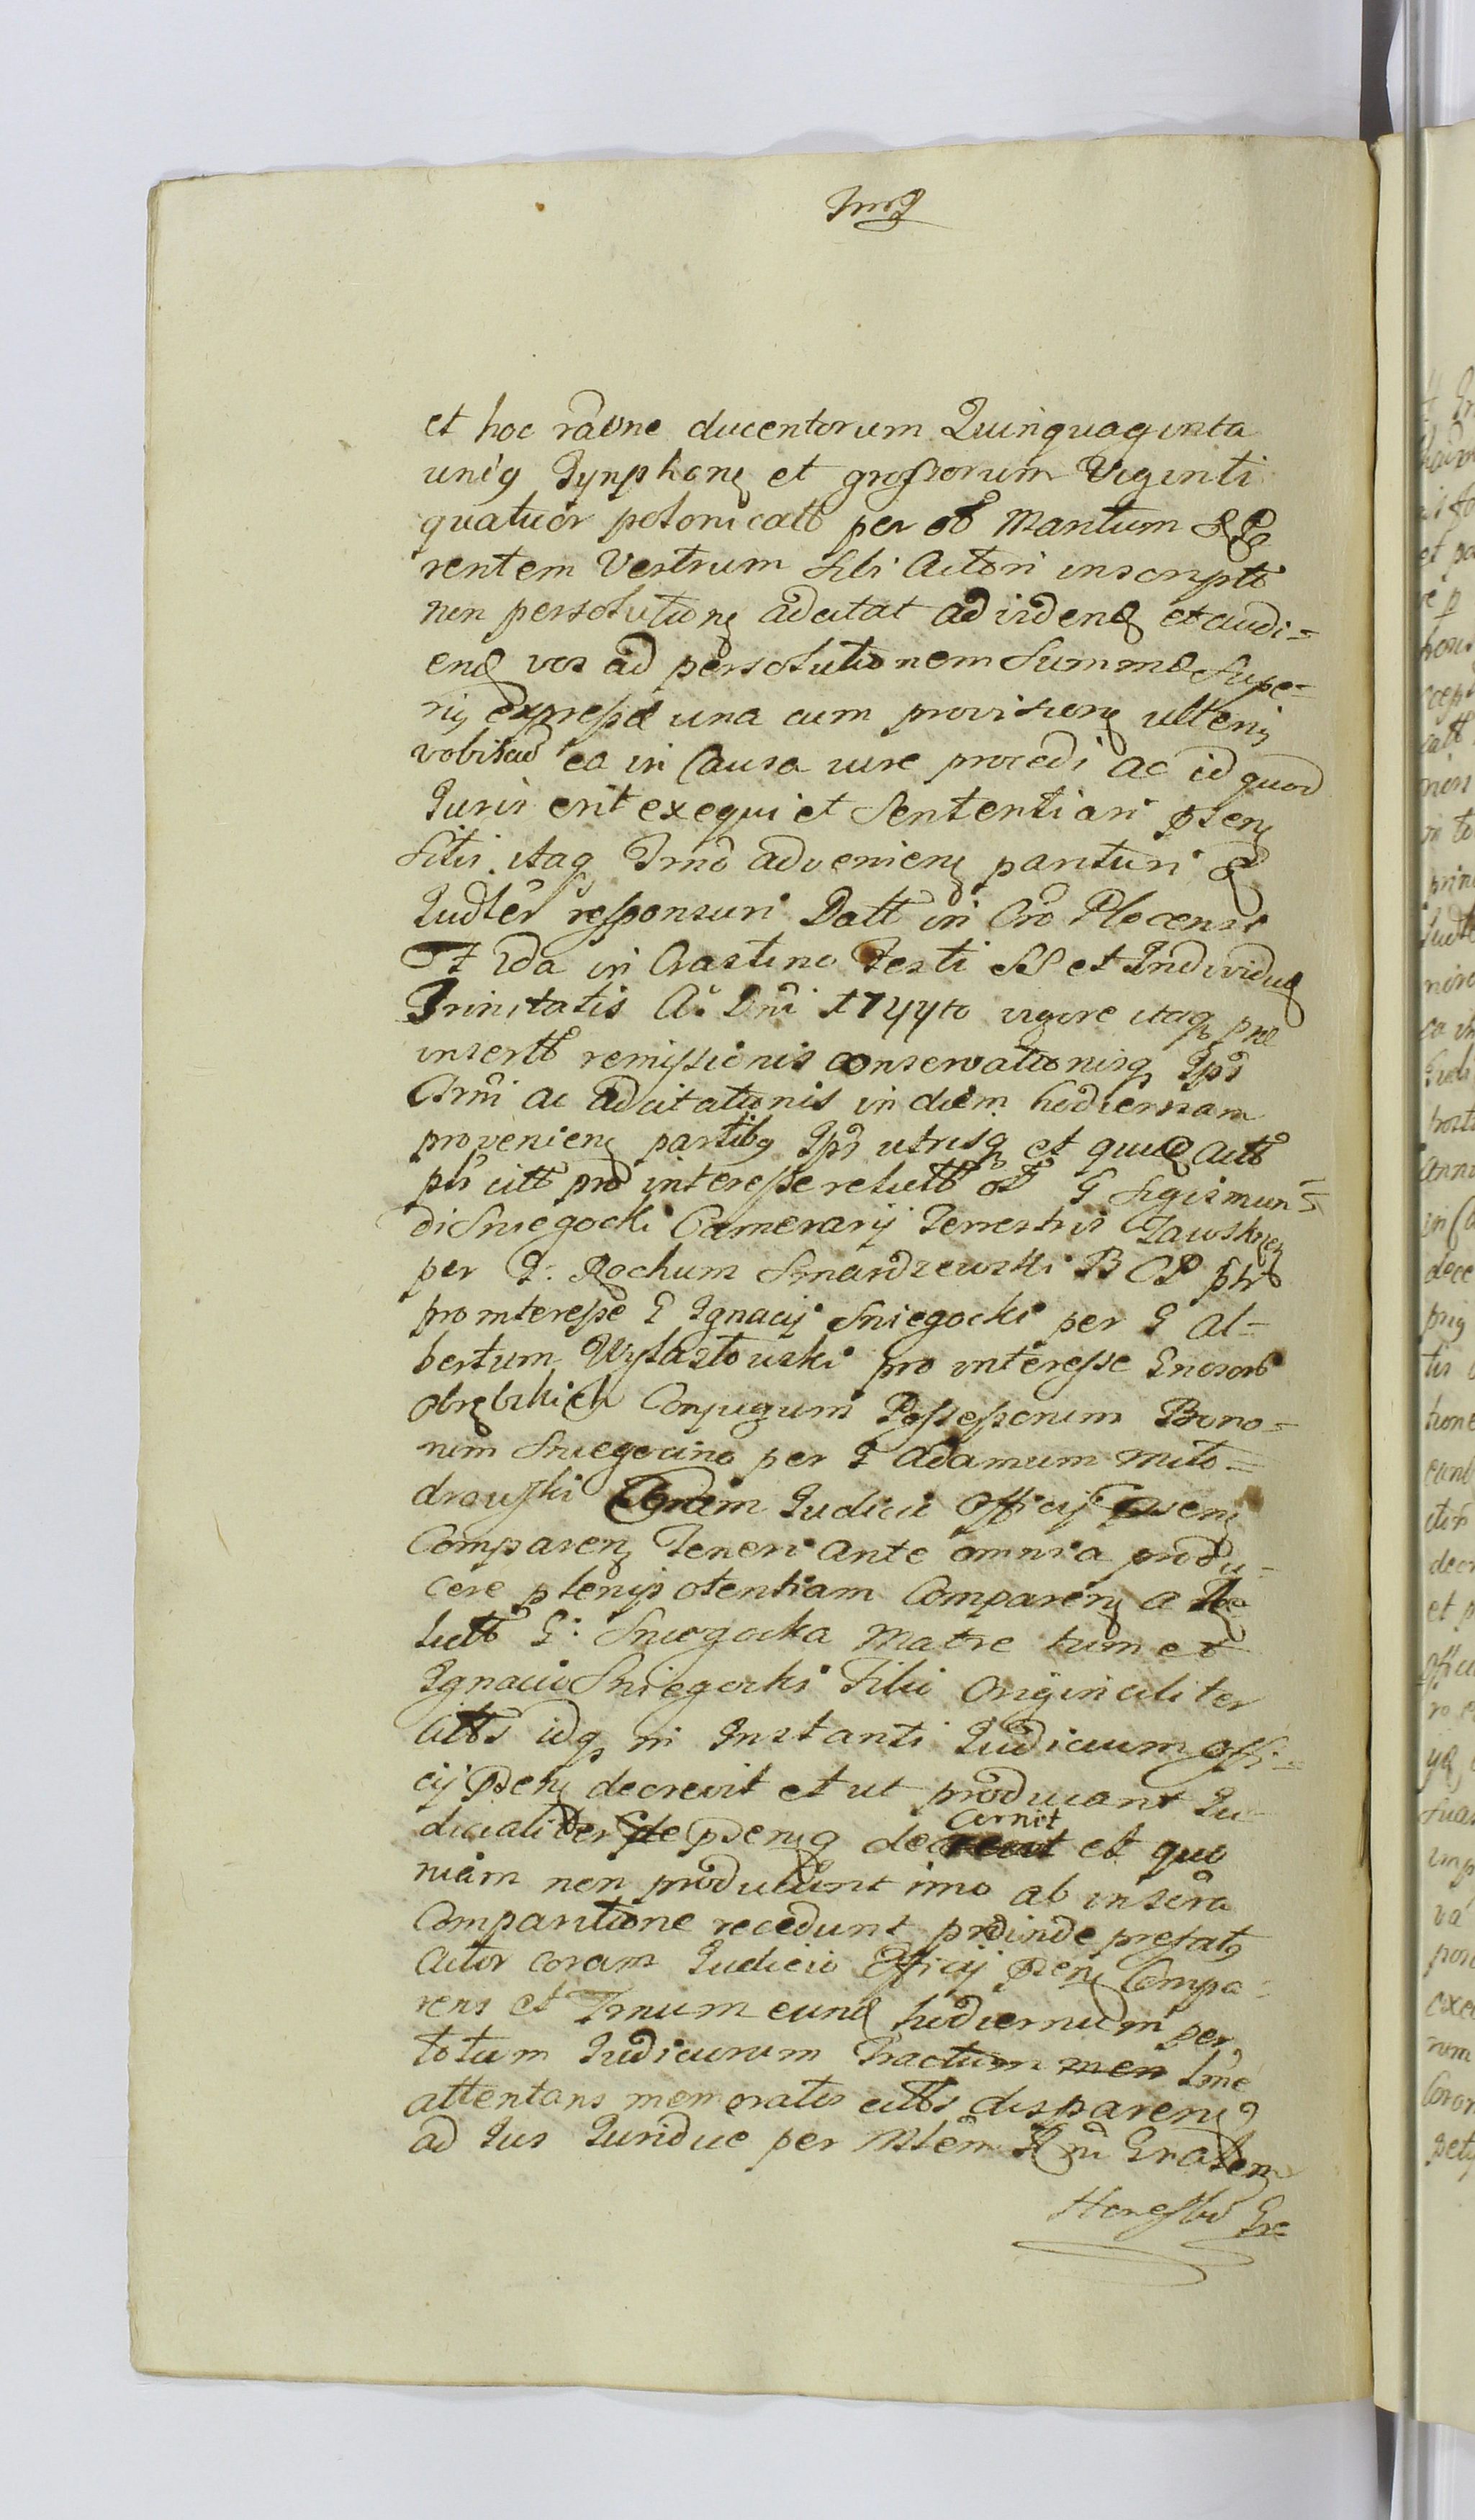 et hoc raõne ducentorum Quinquaginta
unig Tynphonę et grossorum Viginti
quatuor polonicalt per olt Maritum & Pa
rentem Vestrum sibi Actori inscripto
non persolutionę adcitat ad videndę et audi=
endę vos ad persolutionem Summae Supe=
rię expressae una cum provisionę ulterię
vobiscud ea in Causa iure procedi ac id quod
Juris erit exequi et Sententiari pstenę
sitis itaq Trno advenienę parituri &
Judler responsuri Datt in Cro Plocensi
Fr 2da in Crastino Festi SS et Individuę
Trinitatis A. Dni 1744to vigore itaq prae
insertt remissionis conservationisq Tps
Trni ac adcitationis in diem hodiernam
provenienę partibg Tps utrisq et quidę act
pro interesse relictt olt G Sigismun=
di Sniegocki Camerarij Terrestris Zawskrę
per G. Rochum Smardzewski B C P
pro interesse G Ignacij Sniegocki per G Al=
bertum Wylazłowski pro interesse Gnosorb
obrębskich Conjugum Possessorum Bono=
rum Sniegocino per G Adamum Miło=
drowski Coram Judicii Officij psenę
Comparenę Teneri ante omnia produ=
cere plenipotentiam Comparenę a Re
lictt G. Sniegocka Matre tum et
Ignacio Sniegocki Filii Originaliter
Cittos idq in Instanti Judicium offi=
cij psenę decrevit et ut producant Ju=
dicialiter psenę decernit et quo
niam non producunt imo ab inscra
Comparitione recedunt proinde prefatg
Actor coram Judicio Officij psenę Compa=
rens et Trnum eund hodiernum per
totum Judiciorum Tractum men lme
attentans memoratos cittos disparenę
ad Jus Juridice per Mlem Rgni Gnalem
Honestus Gre